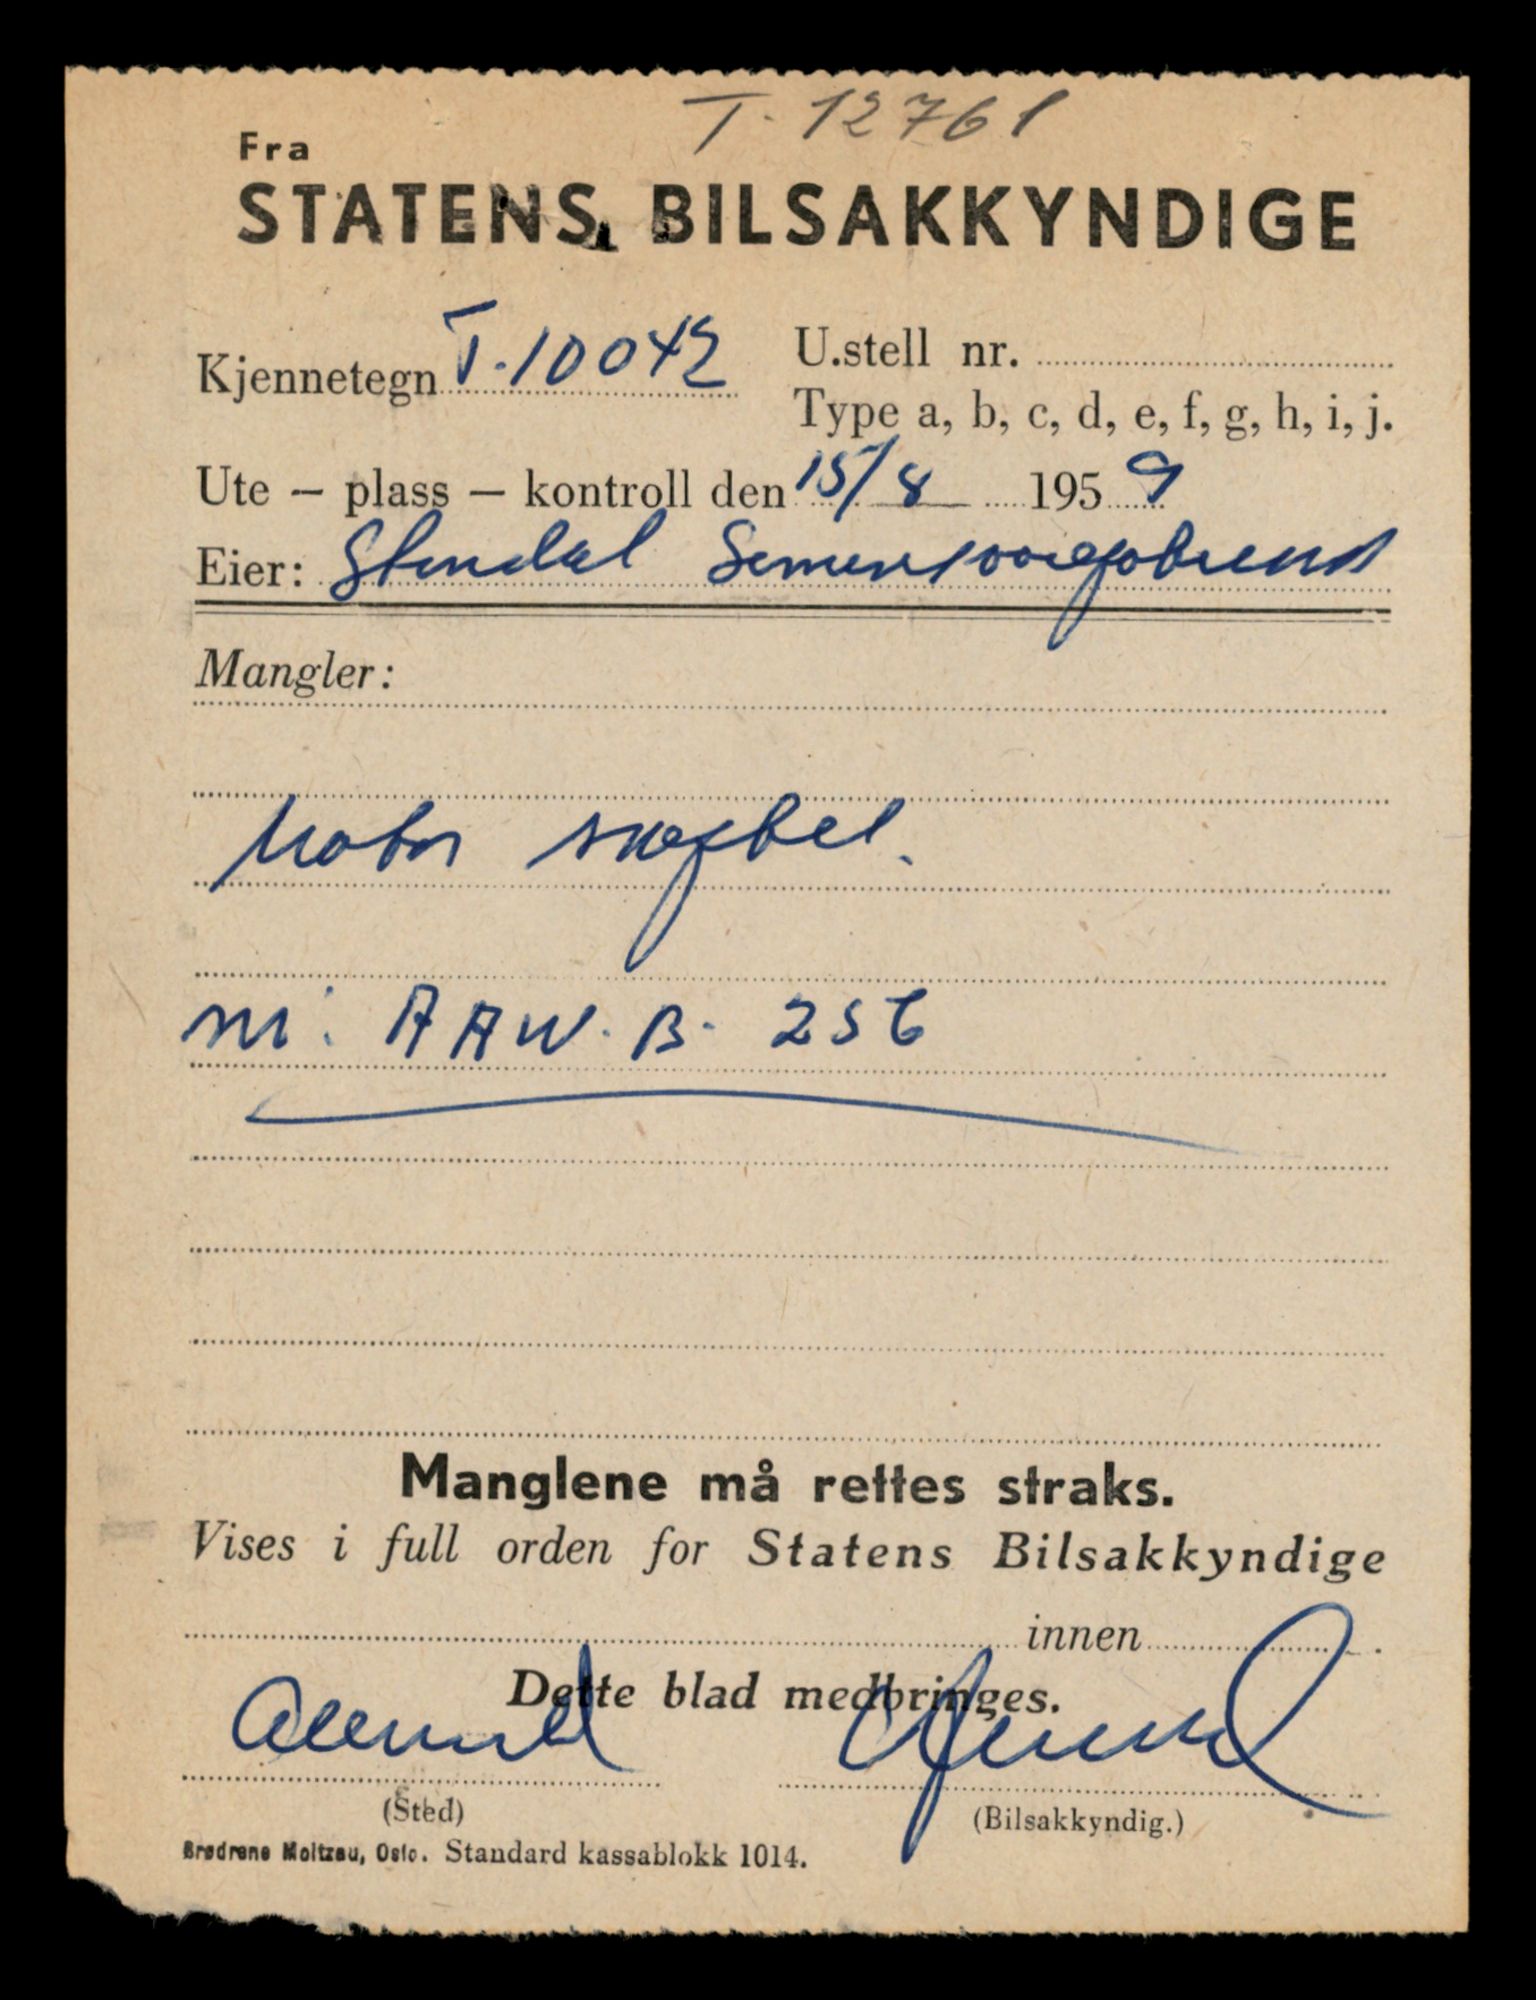 T. 12761
Fra
STATENS BILSAKKYNDIGE
Kjennetegn T. 10042
U.stell nr.
Type a, b, c, d, e, f, g, h, i, j.
Ute – plass – kontroll den 15/8 1959
Eier: Stendal
Mangler:
Motor
nr. AAW. B. 256
Manglene må rettes straks.
Vises i full orden for Statens Bilsakkyndige
innen
Dette blad medbringes.
(Sted)
(Bilsakkyndig.)
Brødrene Moltzau, Oslo. Standard kassablokk 1014.